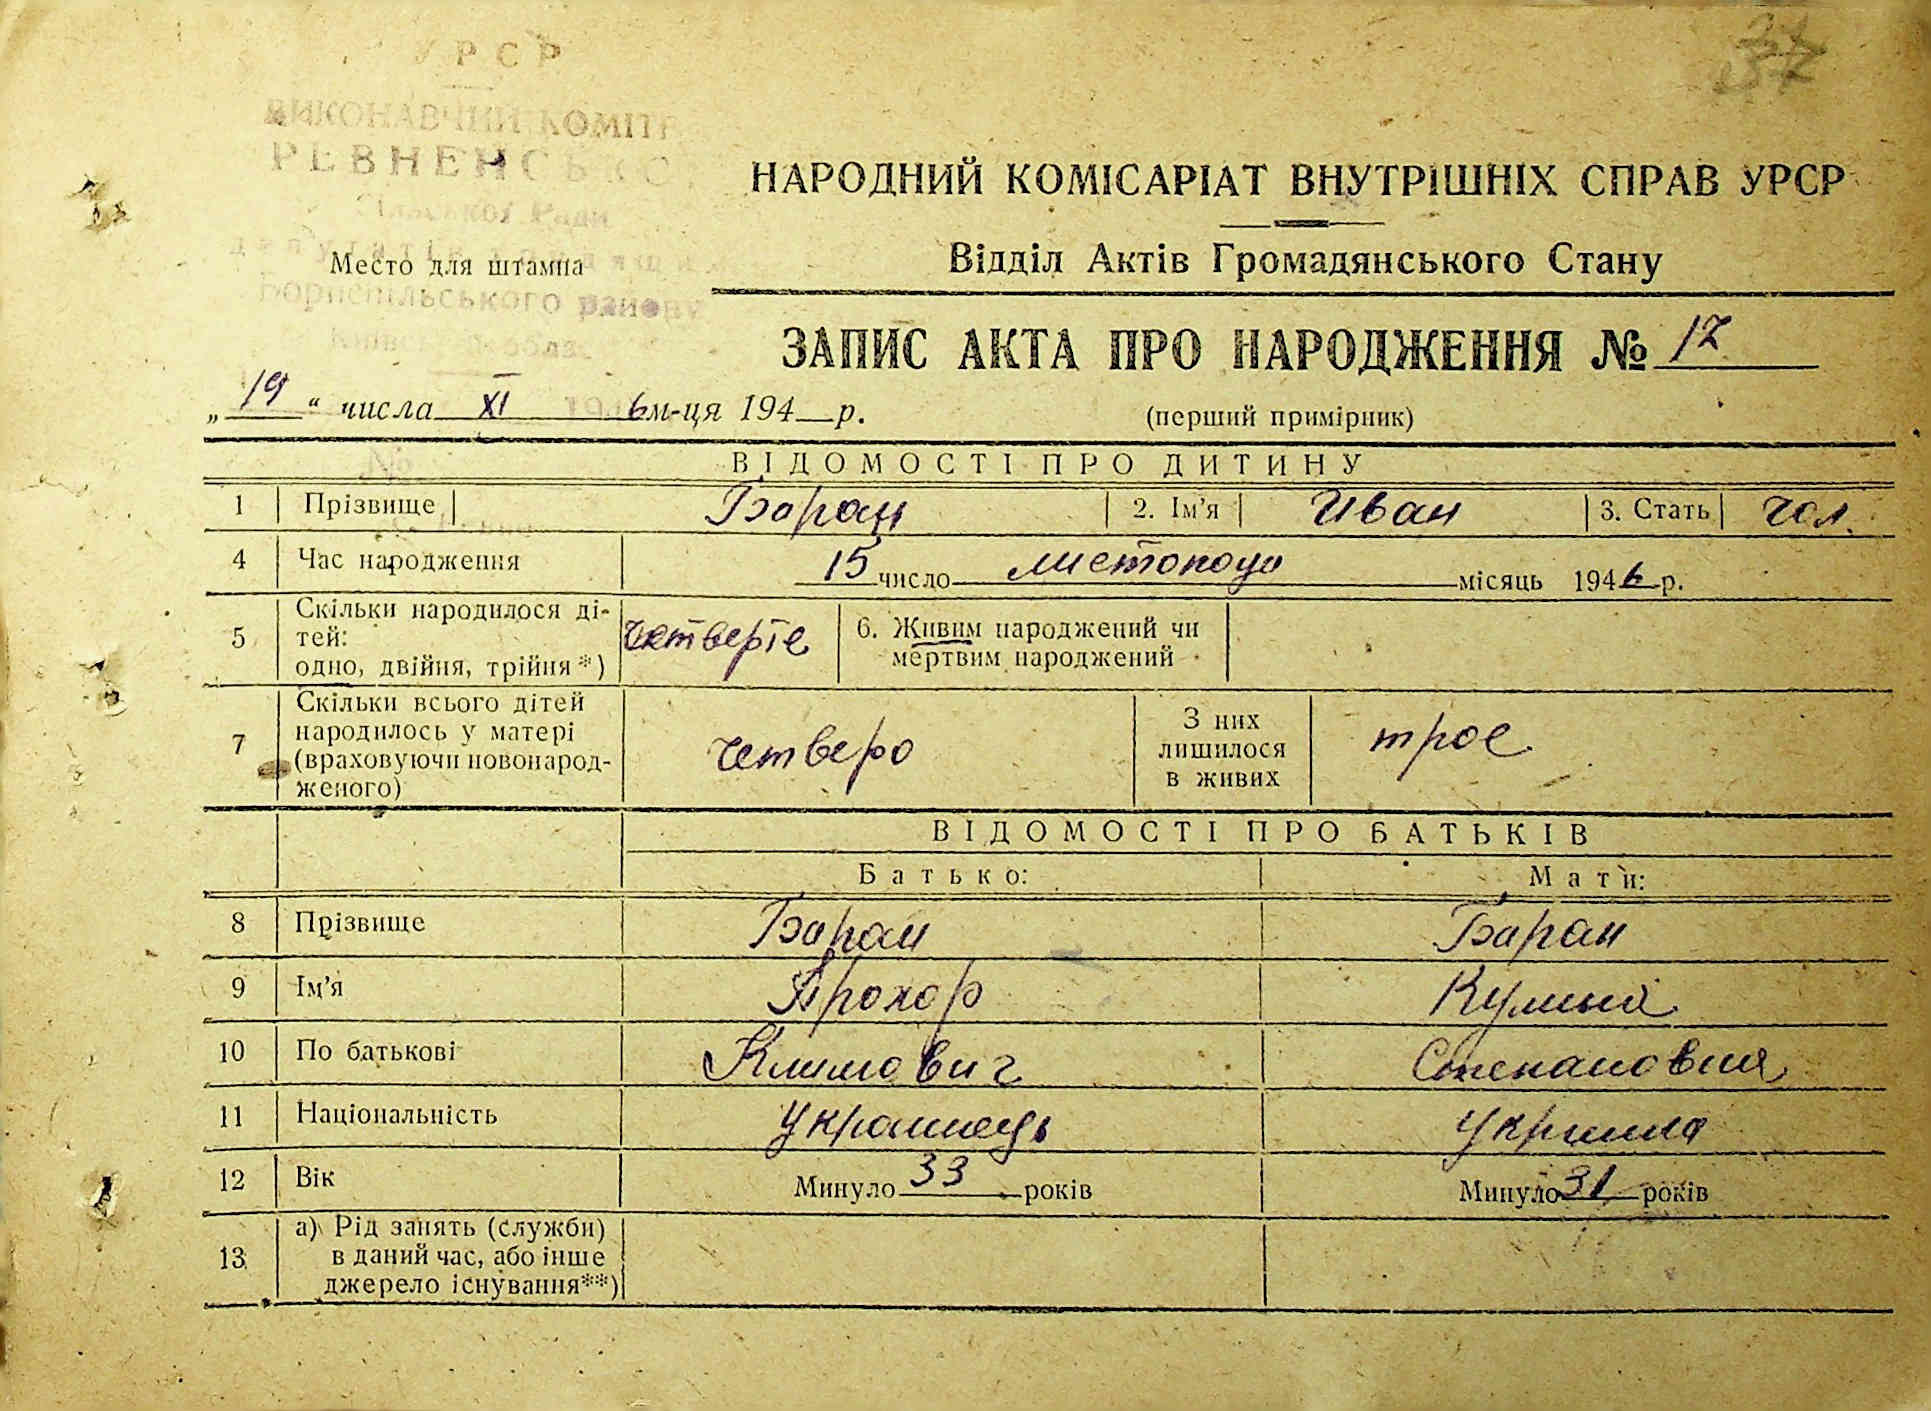 УРСР
ВИКОНАВЧИЙ КОМІТ
РЕВНЕНСЬКО
Сільської Ради
Место для штампа
Бориспільського району
НАРОДНИЙ КОМІСАРІАТ ВНУТРІШНІХ СПРАВ УРСР
Відділ Актів Громадянського Стану
ЗАПИС АКТА ПРО НАРОДЖЕННЯ № 17
„19“ числа XI 6 м-ця 194 р.
(перший примірник)
ВІДОМОСТІ ПРО ДИТИНУ
1 Прізвище Баран 2. Ім'я Иван 3. Стать чол.
4 Час народження 15 число листопада місяць 1946 р.
5 Скільки народилося ді-
тей:
одно, двійня, трійня*) Четверте 6. Живим народжений чи
мертвим народжений
7 Скільки всього дітей
народилось у матері
(враховуючи новонарод-
женого) четверо З них
лишилося
в живих трое
ВІДОМОСТІ ПРО БАТЬКІВ
Батько: Мати:
8 Прізвище Баран Баран
9 Ім'я Прохор Кулина
10 По батькові Климович Степановна
11 Національність Українець Українка
12 Вік Минуло 33 років Минуло 31 років
13 а) Рід занять (служби)
в даний час, або інше
джерело існування**)